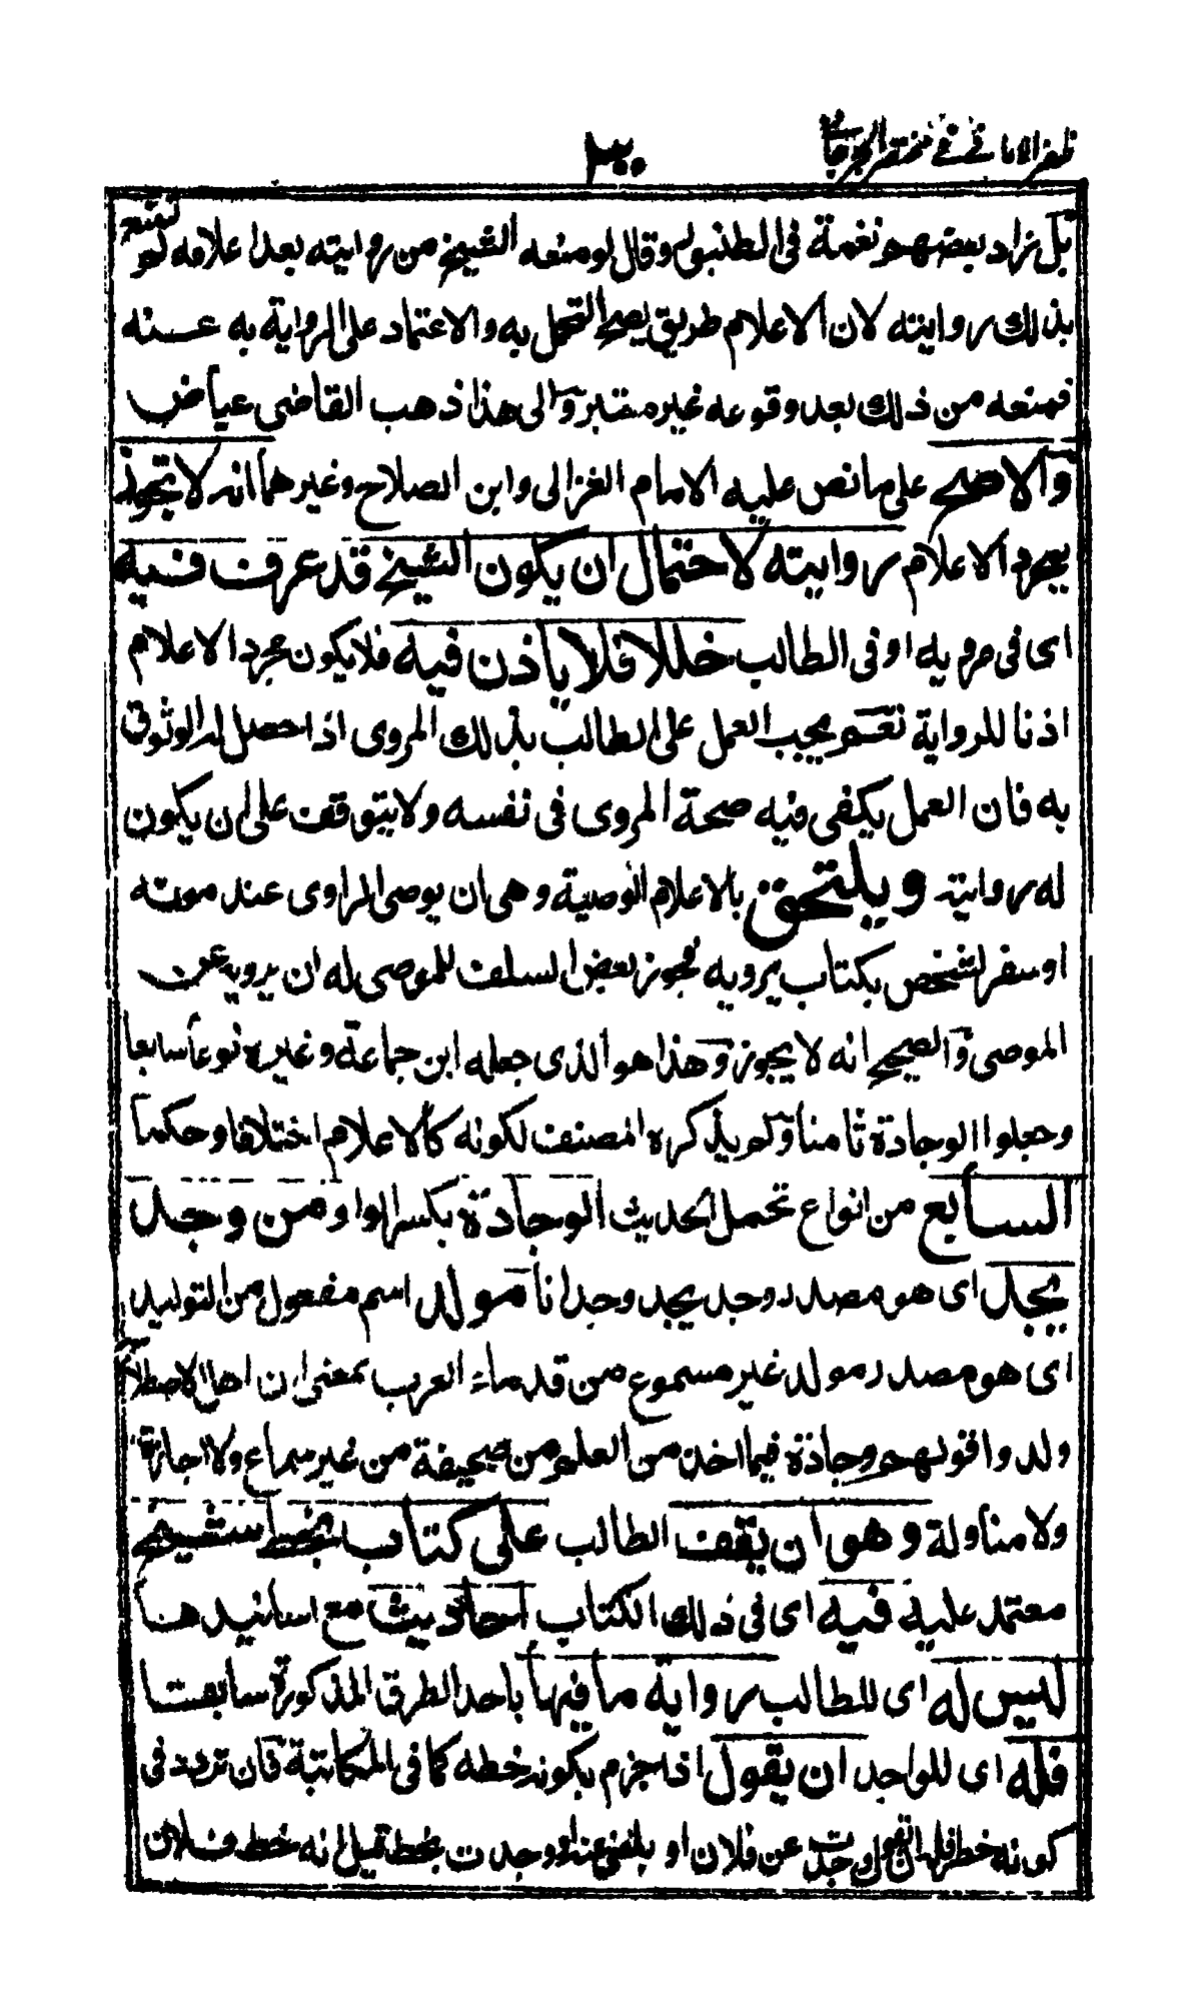 ظفر الامانى فى مختصر الجرجانى
بل زاد بعضهم نغمة فى الطنبور وقال لو منعه الشيخ من روايته بعد اعلامه لم تمتنع
بذلك روايته لان الاعلام طريق يصح التحمل به والاعتماد على الرواية به عنه
فمنعه من ذلك بعد وقوعه غير معتبر والى هذا ذهب القاضى عياض
والاصح على ما نص عليه الامام الغزالى وابن الصلاح وغيرهما انه لا تجوز
بمجرد الاعلام روايته لاحتمال ان يكون الشيخ قد عرف فيه
اى فى مرويه او فى الطالب خللا فلا ياذن فيه فلا يكون مجرد الاعلام
اذنا للرواية نعم يجب العمل على الطالب بذلك المروى اذا حصل له الوثوق
به فان العمل يكفى فيه صحة المروى فى نفسه ولا يتوقف على ان يكون
له روايته ويلتحق بالاعلام الوصية وهى ان يوصى الراوى عند موته
او سفر لشخص بكتاب يرويه فجوز بعض السلف للموصى له ان يرويه عن
الموصى والصحيح انه لا يجوز وهذا هو الذى جعله ابن جماعة وغيره نوعا سابعا
وجعلوا الوجادة ثامنا ولم يذكره المصنف لكونه كالاعلام اختلافا وحكما
السابع من انواع تحمل الحديث الوجادة بكسر الواو من وجد
يجد اى هو مصدر وجد يجد وجدانا مولد اسم مفعول من التوليد
اى هو مصدر مولد غير مسموع من قدماء العرب بمعنى ان اهل الاصطلاح
ولدوا قولهم وجادة فيما اخذ من العلم من صحيفة من غير سماع ولا اجازة
ولا مناولة وهو ان يقف الطالب على كتاب بخط شيخ
معتمد عليه فيه اى فى ذلك الكتاب احاديث مع اسانيدها
ليس له اى للطالب رواية ما فيها باحد الطرق المذكورة سابقا
فله اى للواجد ان يقول اذا جزم بكونه خطه كما فى المكاتبة فان تردد فى
كونه خطه فله ان يقول وجدت عن فلان او بلغنى عنه او وجدت بخط قيل انه خط فلان